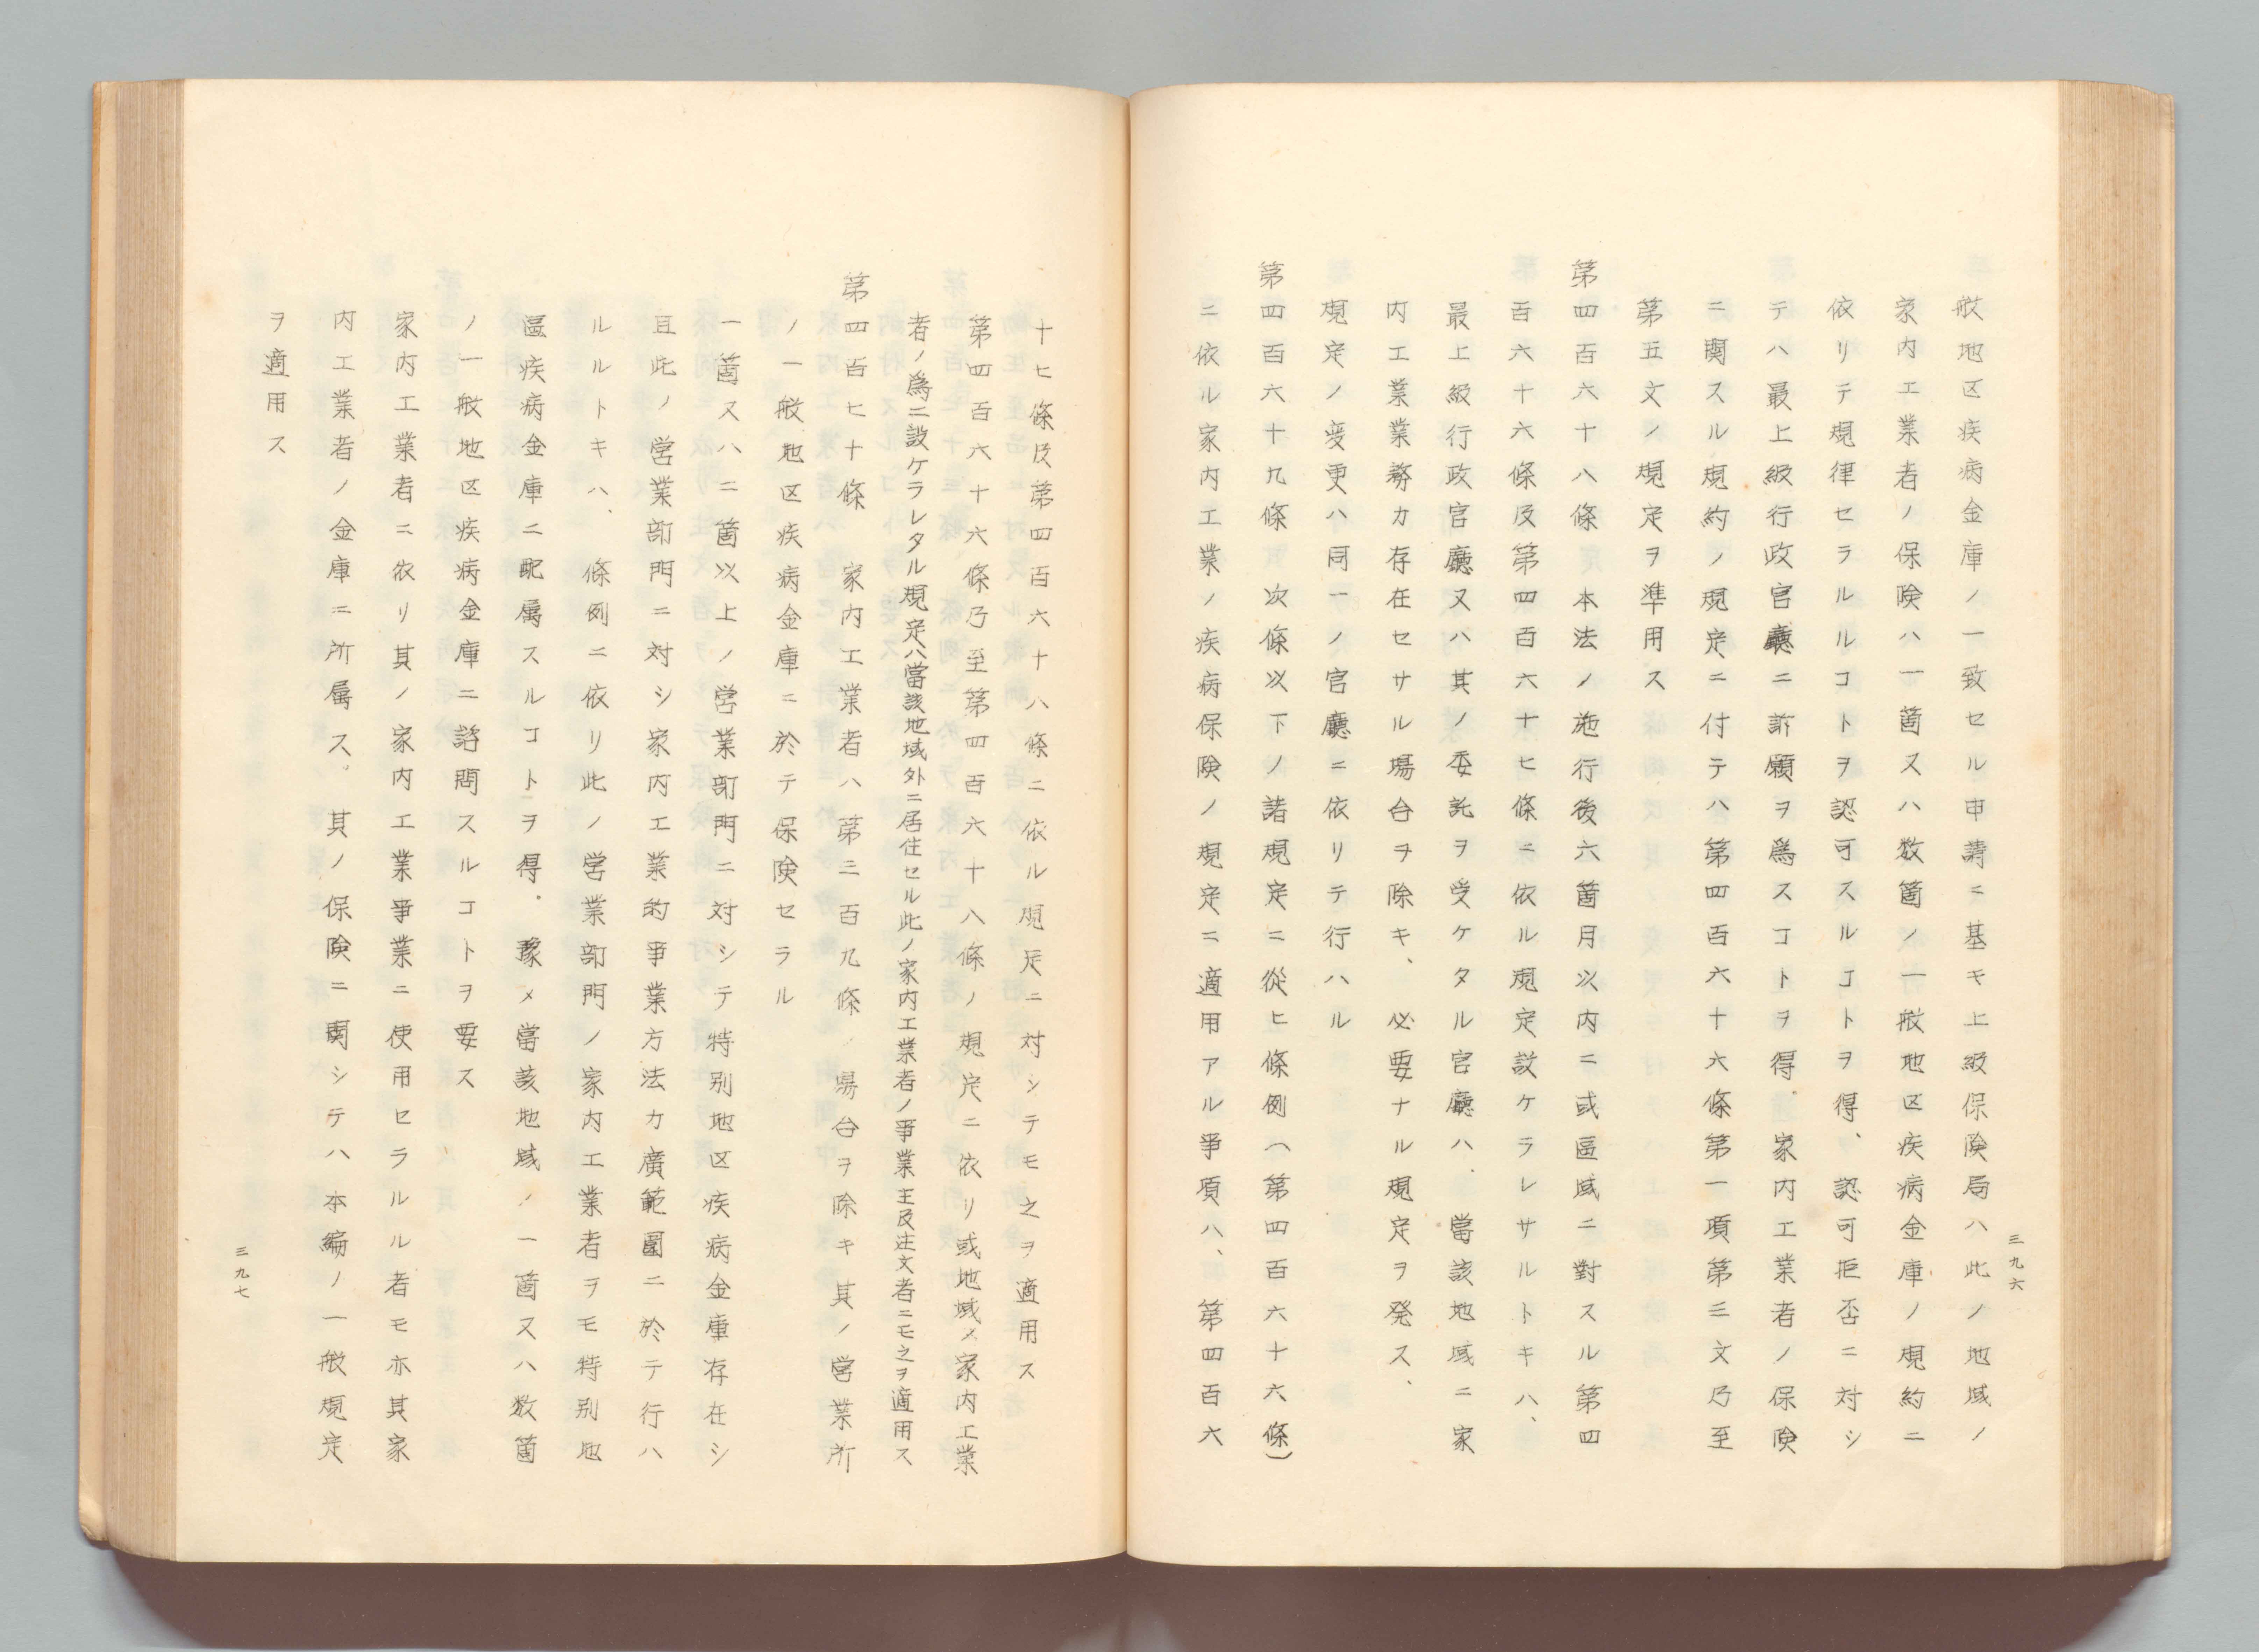 般地区疾病金庫ノ一致セル申請ニ基キ上級保険局ハ此ノ地域ノ
家内工業者ノ保険ハ一箇又ハ数箇ノ一般地区疾病金庫ノ規約ニ
依リテ規律セラルルコトヲ認可スルコトヲ得、認可拒否ニ対シ
テハ最上級行政官廳ニ訴願ヲ為スコトヲ得、家内工業者ノ保険
ニ関スル規約ノ規定ニ付テハ第四百六十六條第一項第三文乃至
第五文ノ規定ヲ準用ス
第四百六十八條 本法ノ施行後六箇月以内ニ或區域ニ對スル第四
百六十六條及第四百六十七條ニ依ル規定設ケラレサルトキハ、
最上級行政官廳又ハ其ノ委託ヲ受ケタル官廳ハ、當該地域ニ家
内工業業務カ存在セサル場合ヲ除キ、必要ナル規定ヲ発ス、
規定ノ変更ハ同一ノ官廳ニ依リテ行ハル
第四百六十九條 次條以下ノ諸規定ニ従ヒ條例(第四百六十六條)
ニ依ル家内工業ノ疾病保険ノ規定ニ適用アル事項ハ、第四百六
三九六
十七條及第四百六十八條ニ依ル規定ニ対シテモ之ヲ適用ス
第四百六十六條乃至第四百六十八條ノ規定ニ依リ或地域ノ家内工業
者ノ為ニ設ケラレタル規定ハ當該地域外ニ居住セル此ノ家内工業者ノ事業主及注文者ニモ之ヲ適用ス
第四百七十條 家内工業者ハ第三百九條ノ場合ヲ除キ其ノ営業所
ノ一般地区疾病金庫ニ於テ保険セラル
一箇又ハ二箇以上ノ営業部門ニ対シテ特別地区疾病金庫存在シ
且此ノ営業部門ニ対シ家内工業的事業方法カ廣範圍ニ於テ行ハ
ルルトキハ、條例ニ依リ此ノ営業部門ノ家内工業者ヲモ特別地
區疾病金庫ニ配属スルコトヲ得．豫メ當該地域ノ一箇又ハ数箇
ノ一般地区疾病金庫ニ諮問スルコトヲ要ス
家内工業者ニ依リ其ノ家内工業事業ニ使用セラルル者モ亦其家
内工業者ノ金庫ニ所属ス。其ノ保険ニ関シテハ本編ノ一般規定
ヲ適用ス
三九七